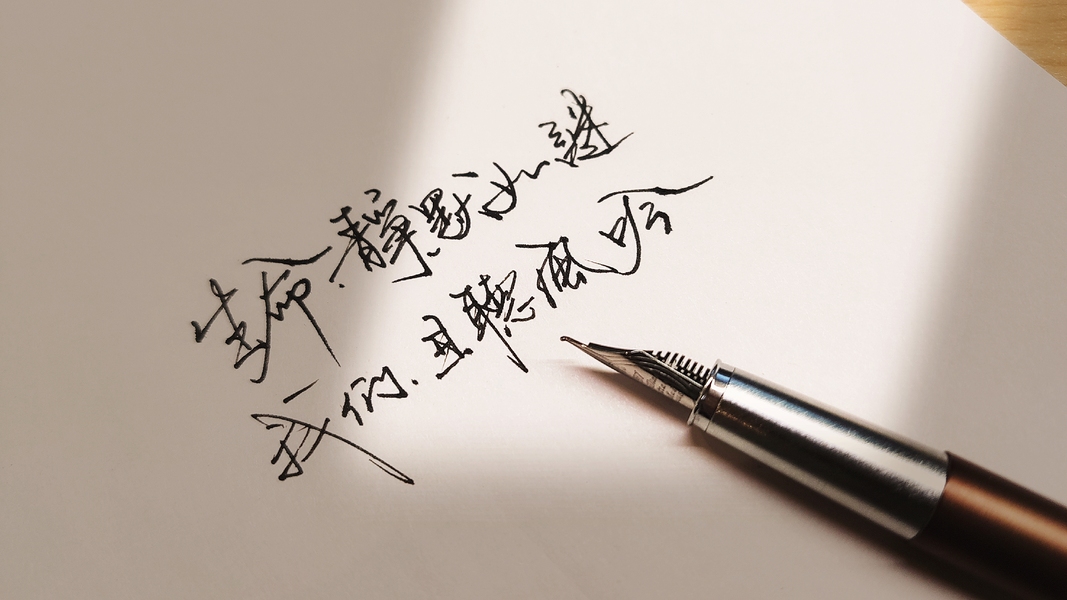 生命.静默如谜
我们.且聽風吟